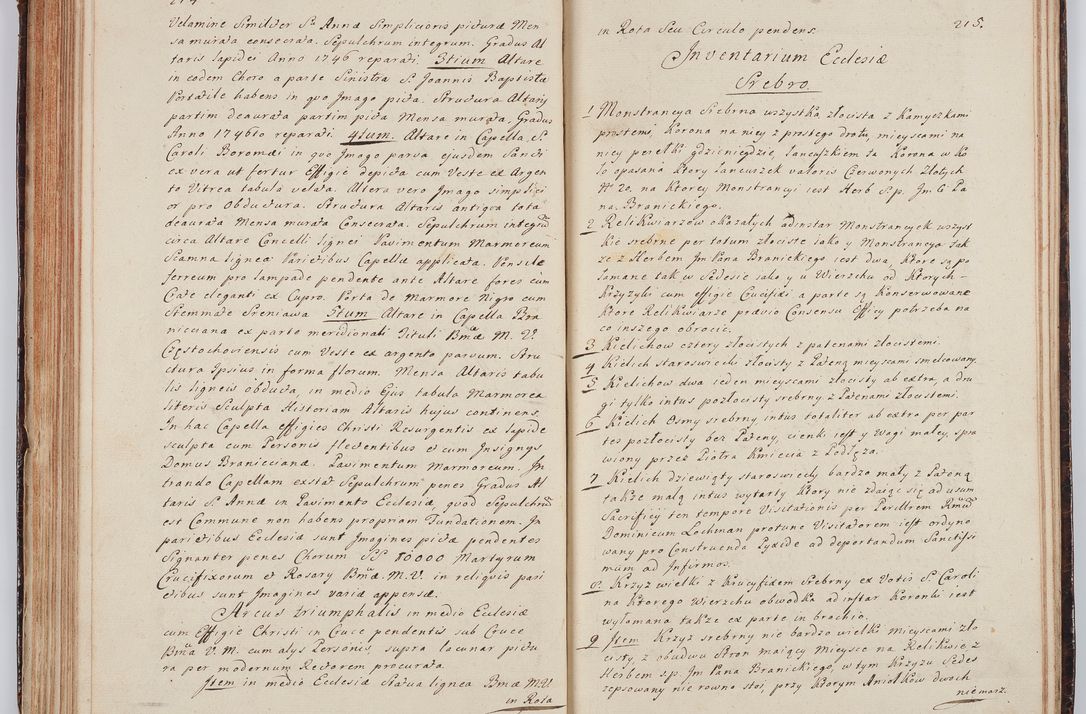 214
Velamine Similiter Stæ Annæ Simplicioris picturæ Men
sa murata consecrata. Sepulchrum integrum. Gradus Al
taris lapidei Anno 1746 reparati. 3tium Altare
in eodem Choro a parte Sinistra S. Joannis Baptistæ
Portatile habens in quo Imago picta. Structura Altaris
partim deaurata partim picta Mensa murata, Gradus
Anno 1746to reparati. 4tum. Altare in Capella S.
Caroli Boromæi in quo Imago parva ejusdem Sancti
ex vera ut fertur Effigie depicta cum Veste ex Argen
to Vitrea tabula velata. Altera vero Imago simplici
or pro Obductura. Structura Altaris antiqua tota
deaurata Mensa murata Consecrata. Sepulchrum integrum
circa Altare Cancelli lignei Pavimentum Marmoreum
Scamna lignea Parietibus Capellæ applicata. Pensile
ferreum pro lampade pendente ante Altare fores cum
Crate eleganti ex Cupro. Porta de Marmore Nigro cum
Stemmate Sreniawa 5tum Altare in Capella Bra
nicciana ex parte meridionali Tituli Bmæ M. V.
Częstochoviensis cum Veste ex argento parvum. Stru
ctura Ipsius in forma florum. Mensa Altaris tabu
lis ligneis obducta, in medio Ejus tabula Marmorea
literis Sculpta Historiam Altaris hujus continens.
In hac Capella effigies Christi Resurgentis ex lapide
sculpta cum Personis flectentibus et cum Insignys
Domus Braniccianæ. Pavimentum Marmoreum. In
trando Capellam extat Sepulchrum penes Gradus Al
taris S. Annæ in Pavimento Ecclesiæ, quod Sepulchrum
est Commune non habens propriam Fundationem. In
parietibus Ecclesiæ sunt Imagines pictæ pendentes
Signanter penes Chorum SS. 10000 Martyrum
Crucifixorum et Rosary Bmæ. M. V. in reliquis pari
etibus sunt Imagines variæ appensæ.
Arcus triumphalis in medio Ecclesiæ
cum Effigie Christi in Cruce pendentis sub Cruce
Bmæ V. M. cum alys Personis, supra lacunar pictu
ra per modernum Rectorem procurata.
Item in medio Ecclesiæ Statua lignea Bmæ M. V.
in Rota
215.
in Rota Seu Circulo pendens.
Inventarium Ecclesiæ
Srebro.
1 Monstrancya Srebrna wszystka złocista z Kamyczkami
prostemi, Korona na niey z prostego drotu, mieyscami na
niey perełki gdzieniegdzie, łancuszkiem ta Korona w Ko
ło opasana Ktory łancuszek valoris Czerwonych Złotych
No 20. na Ktorey Monstrancyi iest Herb S.p. Jm C Pa
na Branickiego.
2 Relikwiarzow okazałych adinstar Monstrancyek wszyst
kie srebrne per totum złociste iako y Monstrancya tak
ze z Herbem Jm Pana Branickiego iest dwa, Ktore są po
łamane tak w Sedesie iako y u Wierzchu od Ktorych
Krzyzyki cum effigie Crucifixi a parte są Konserwowane
Ktore Relikwiarze prævio Consensu Officy potrzeba na
co inszego obrocic.
3 Kielichow cztery złocistych z patenami złocistemi.
4 Kielich staroswiecki złocisty z Pateną mieyscami smelcowany.
5 Kielichow dwa ieden mieyscami złocisty ab extra, a dru
gi tylko intus pozłocisty srebrny z Patenami złocistemi.
6 Kielich Osmy srebrny, intus totaliter ab extra per par
tes pozłocisty bez Pateny, cienki iest y Wagi małey, spra
wiony przez Piotra Kmiecia z Podłęża.
7 Kielich dziewiąty staroswiecki bardzo mały z Pateną
także małą intus wytarty Ktory nie zdaiąc się ad usum
Sacrificy ten tempore Visitationis per Perillrem Rmum
Dominicum Lochman protunc Visitatorem iest ordyno
wany pro Construenda Pyxide ad deportandum Sanctissi
mum ad Infirmos.
8 Krzyż wielki z Krucyfixem Srebrny ex Votis S. Caroli
na Ktorego Wierzchu obwodka adinstar Koronki iest
wyłamana także ex parte in brachio.
9 Item Krzyż srebrny nie bardzo wielki mieyscami zło
cisty, z obudwu Stron maiący Mieysce na Relikwie z
Herbem s.p. Jm Pana Branickiego, w tym Krzyzu Sedes
zepsowany nie rowno stoi, przy Ktorym Aniołkow dwoch
niemasz.